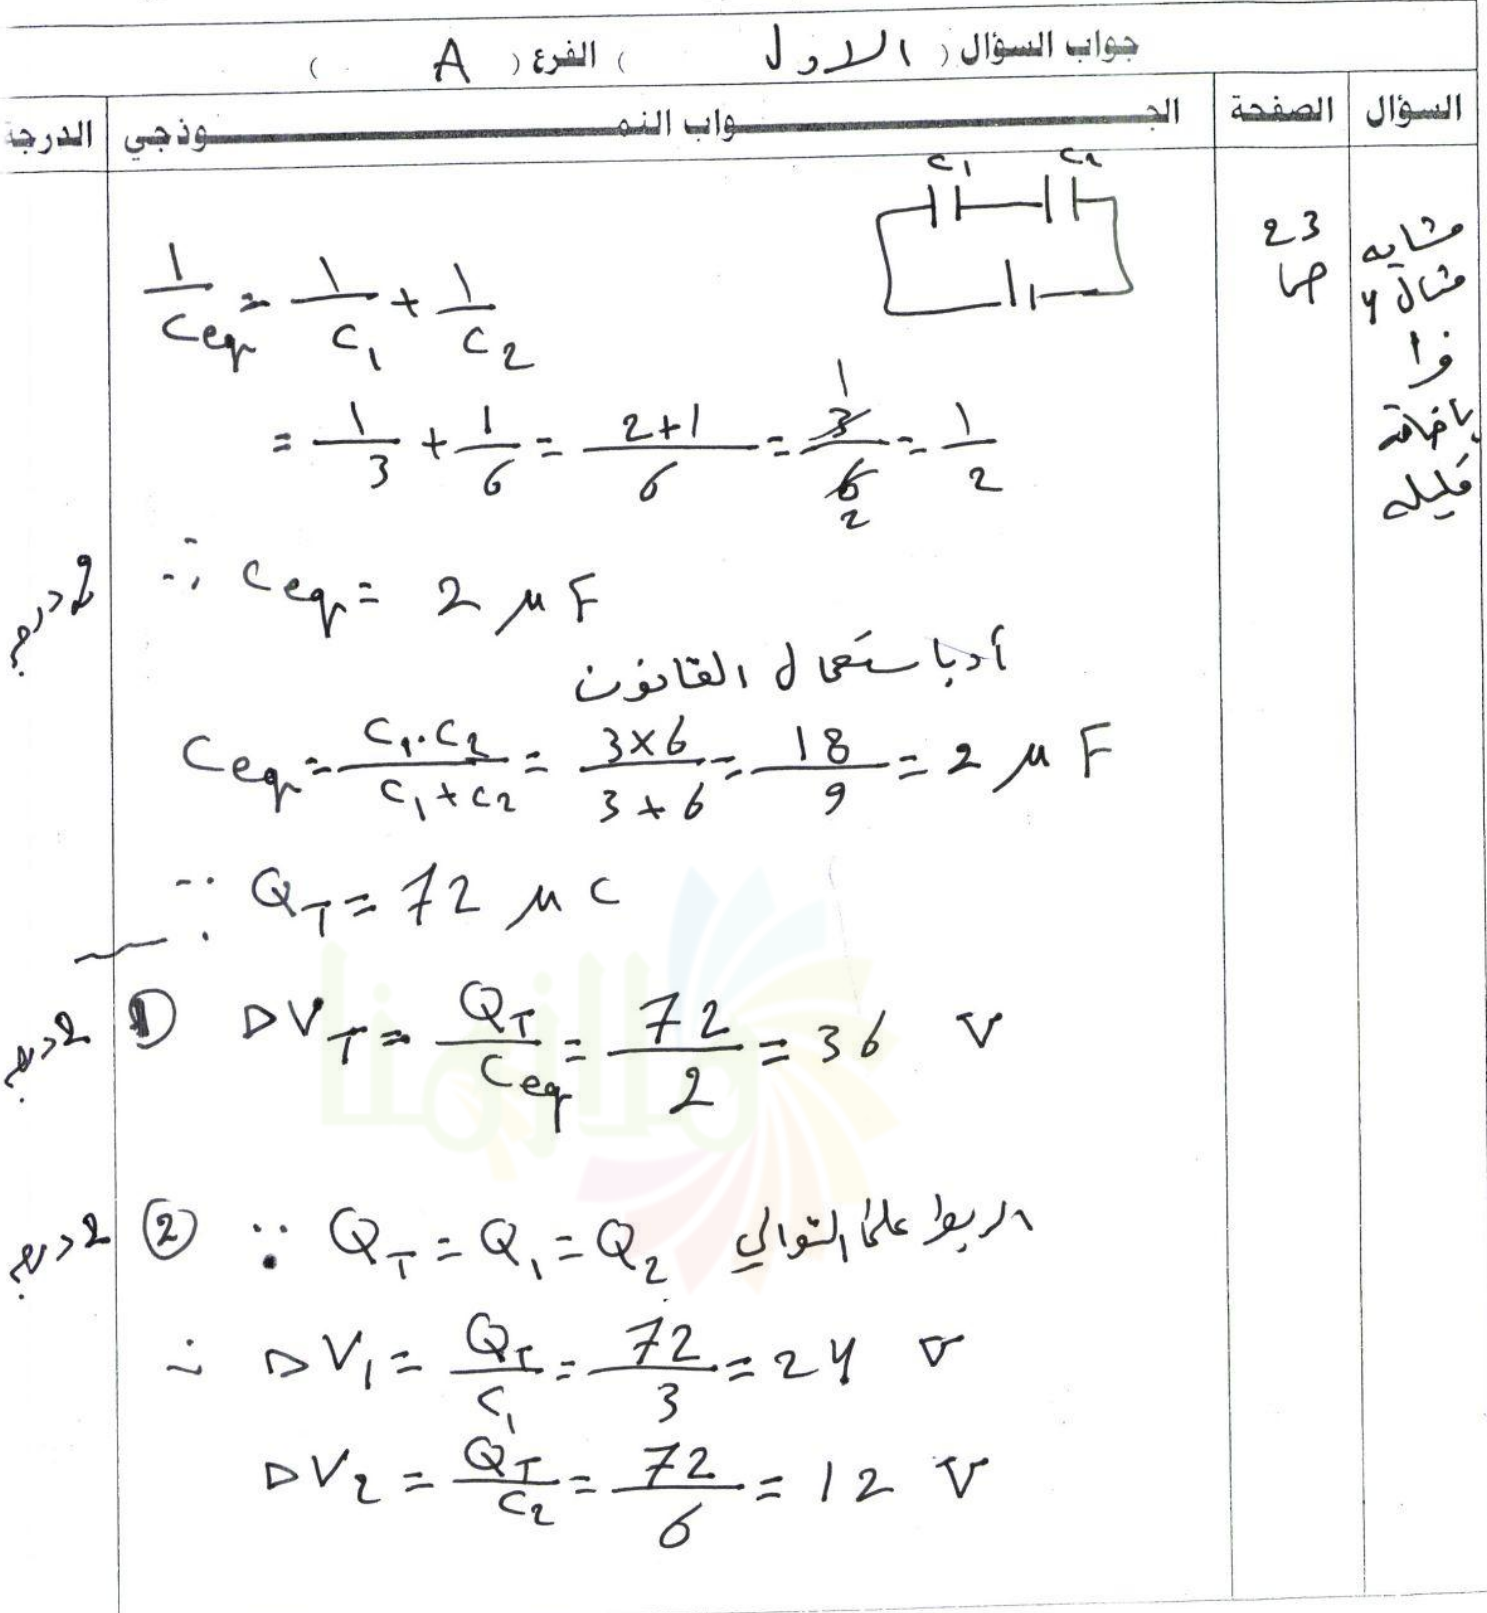 جواب السؤال ( الاول ) الفرع ( A )
السؤال الصفحة الجـــواب النمـــوذجي الدرجة
C1 C2
23
ص
مشابه
مثال 4
ف1
باضافة
قليله
1/Ceq = 1/C1 + 1/C2
= 1/3 + 1/6 = 2+1/6 = 3/6 = 1/2
∴ Ceq = 2 μF
2 درجة
أو باستعمال القانون
Ceq = C1.C2/C1+C2 = 3×6/3+6 = 18/9 = 2 μF
∵ QT = 72 μC
ملازمنا
① ΔVT = QT/Ceq = 72/2 = 36 V
2 درجة
② ∵ QT = Q1 = Q2 الربط على التوالي
2 درجة
∴ ΔV1 = QT/C1 = 72/3 = 24 V
ΔV2 = QT/C2 = 72/6 = 12 V